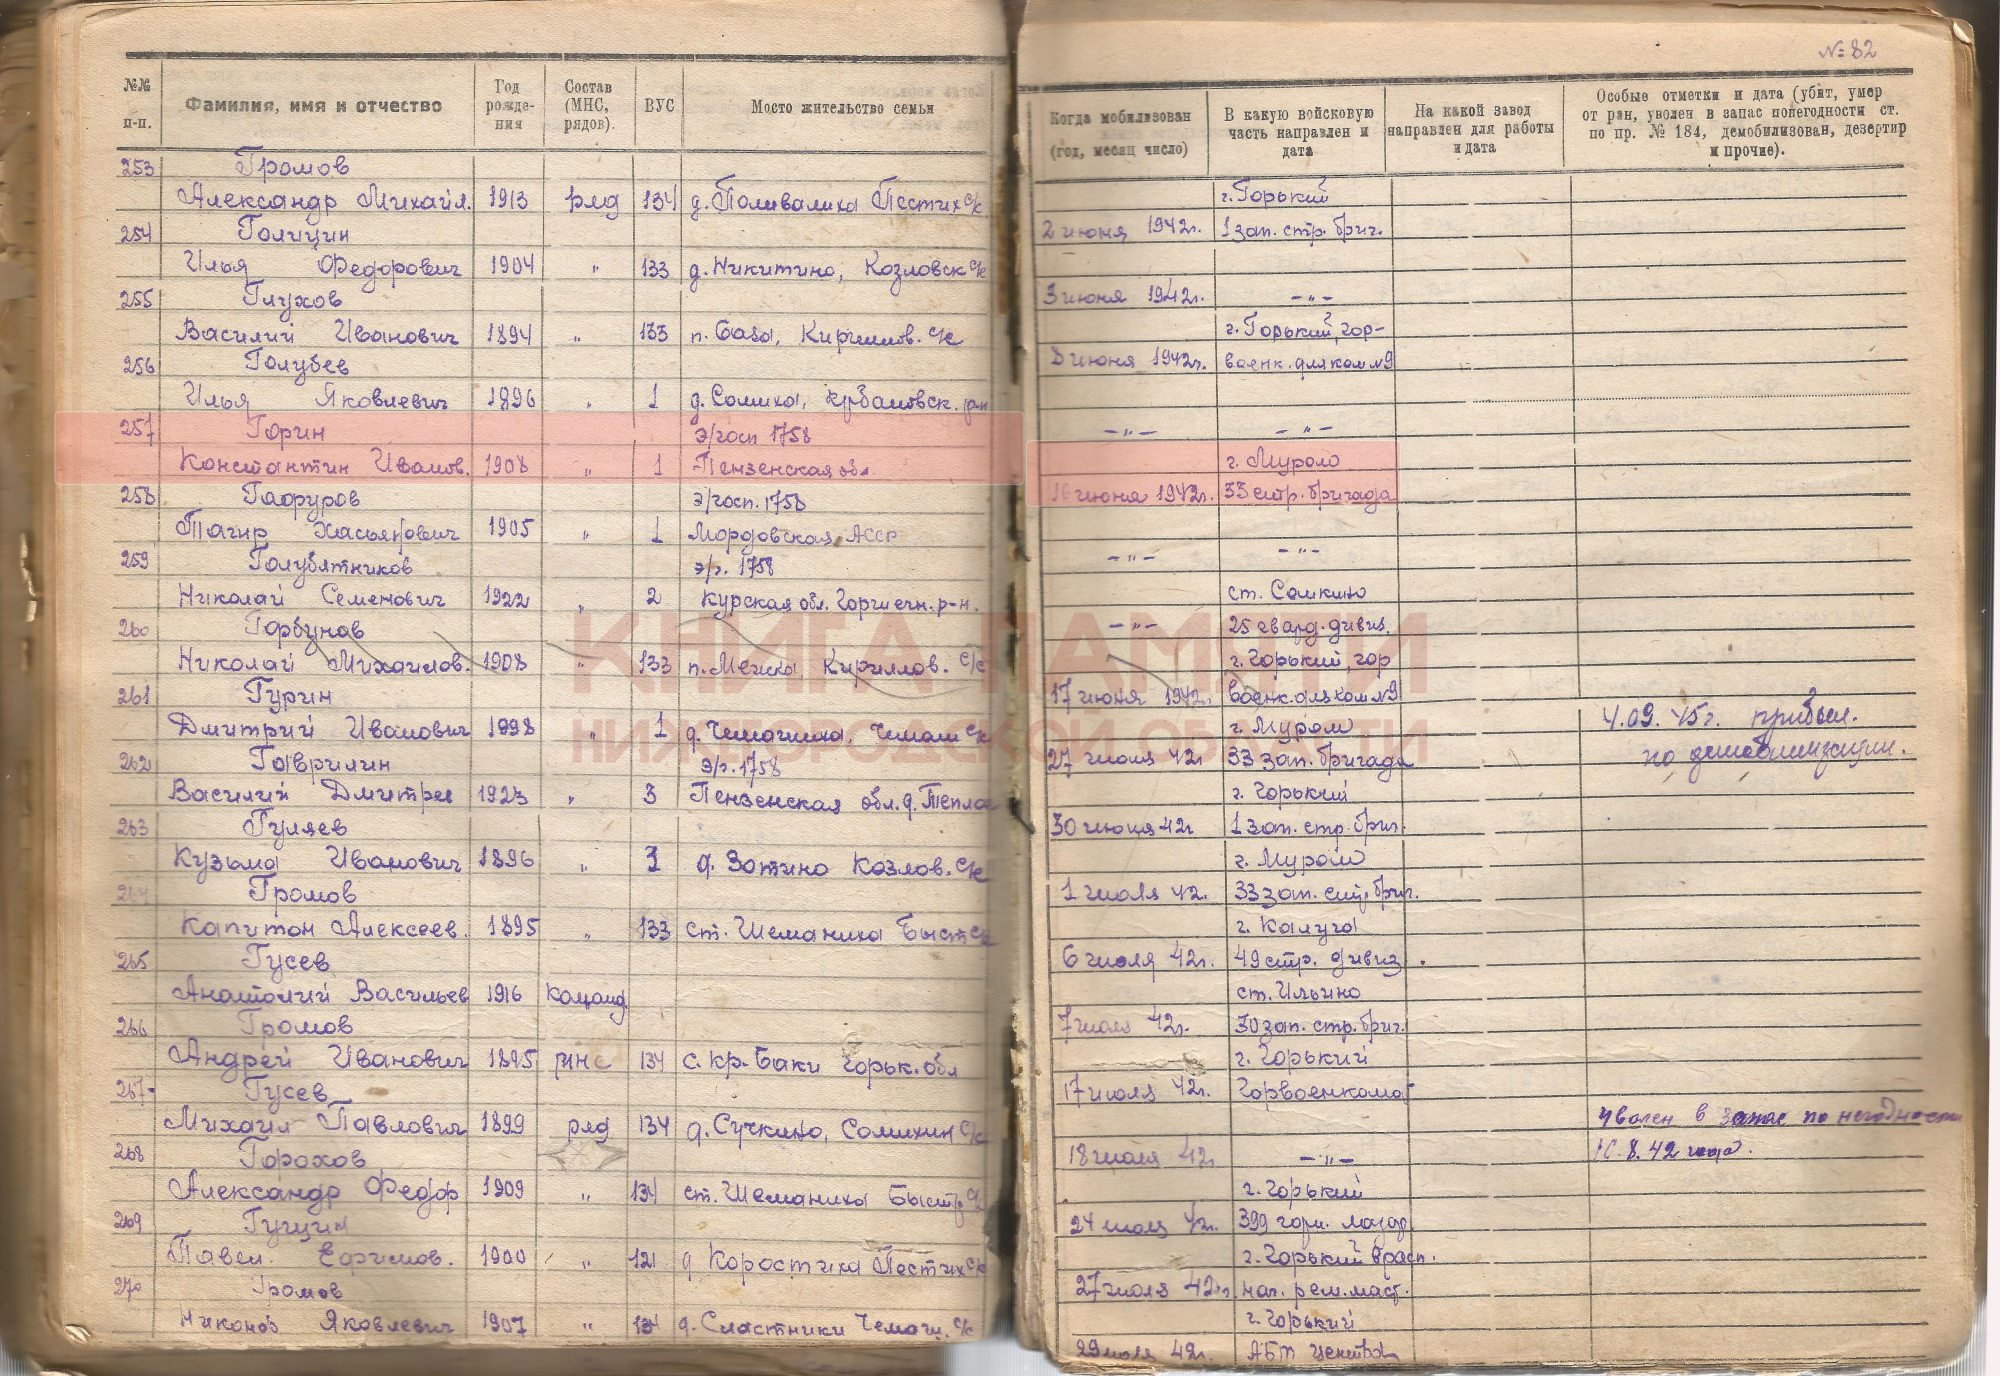 № 82
№№ п-п. Фамилия, имя и отчество Год рождения Состав (МНС, рядов). ВУС Место жительство семьи Когда мобилизован (год, месяц число) В какую войсковую часть направлен и дата На какой завод направлен для работы и дата Особые отметки и дата (убит, умер от ран, уволен в запас по негодности ст. по пр. № 184, демобилизован, дезертир и прочие).
253 Громов г. Горький
Александр Михайл. 1913 ряд 134 д. Поливалиха Пестих с/к 2 июня 1942г. 1 зап. стр. бриг.
254 Голицин
Илья Федорович 1904 " 133 д. Никитино, Козловск с/к 3 июня 1942г. -"-
255 Глухов г. Горький, гор-
Василий Иванович 1894 " 133 п. База, Кириллов. с/к июня 1942г. военк. для ком №9
256 Голубев
Илья Яковлевич 1896 " 1 д. Солиха, р-н -"- -"-
257 Горин э/госп 1758 г. Муром
Константин Иванов. 1908 " 1 Пензенская обл. 16 июня 1942г. 33 стр. бригада
258 Гафуров э/госп. 1758
Тагир 1905 " 1 Мордовская АССР -"- -"-
259 Голубятников э/г. 1758 ст. Сомкино
Николай Семенович 1922 " 2 Курская обл. р-н. -"- 25 гвард. дивиз.
260 Горбунов г. Горький, гор
Николай Михаилов. 1908 " 133 п. Кириллов. с/с 17 июня 1942г. военк. для ком №9
261 Гурин г. Муром 4.09.45г. прибыл.
Дмитрий Иванович 1898 " 1 д. с/к 27 июня 42г 33 зап. бригада по демобилизации.
262 Гаврилин э/г. 1758 г. Горький
Василий Дмитрие 1923 " 3 Пензенская обл. д. 30 июня 42г 1 зап. стр. бриг.
263 Гуляев г. Муром
Кузьма Иванович 1896 " д. Зотино Козлов. с/к 1 июля 42. 33 зап. стр. бриг.
264 Громов г. Калуга
Капитон Алексеев. 1895 " 133 ст. Шеманиха Быстр с/к 6 июля 42г. 49 стр. дивиз.
265 Гусев ст. Ильино
Анатолий Васильев 1916 команд 7 июля 42г. 30 зап. стр. бриг.
266 Громов г. Горький
Андрей Иванович 1895 мнс 134 с. Кр-Баки Горьк. обл 17 июля 42г. Горвоенкомат
267 Гусев уволен в запас по негодности
Михаил Павлович 1899 ряд 134 д. Сучкино, Солихин с/с 18 июля 42 -"- 8.42 года.
268 Горохов г. Горький
Александр Федор 1909 " 134 ст. Шеманиха Быстр с/к 24 июля 42г. 399
269 Гущин г. Горький в расп.
Павел Ефимов. 1900 " 121 д Коростиха Пестих с/к 27 июля 42г. нач. рем. маст.
270 Громов г. Горький
Яковлевич 1907 " 134 д. Сластники с/к 29 июля 42г. АБТ центр
КНИГА ПАМЯТИ
НИЖЕГОРОДСКОЙ ОБЛАСТИ